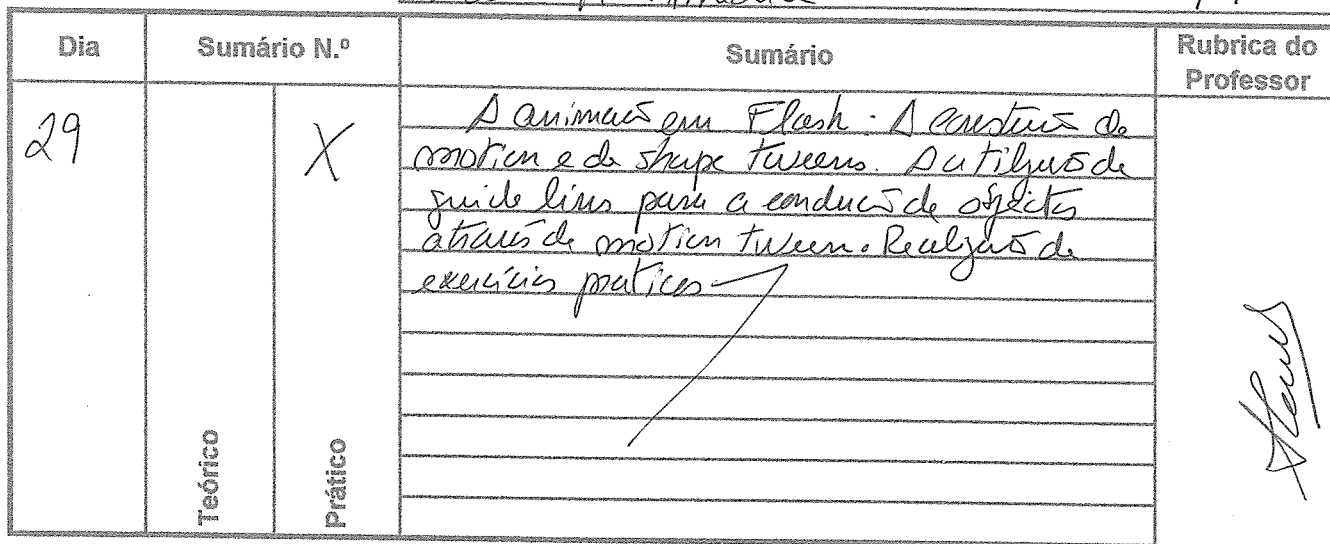 Dia Sumário N.º Sumário Rubrica do Professor
29 X A animação em Flash. A construção de
motion e de shape tweens. A utilização de
guide lines para a condução de objectos
através de motion tween. Realização de
exercícios praticos
Teórico
Prático